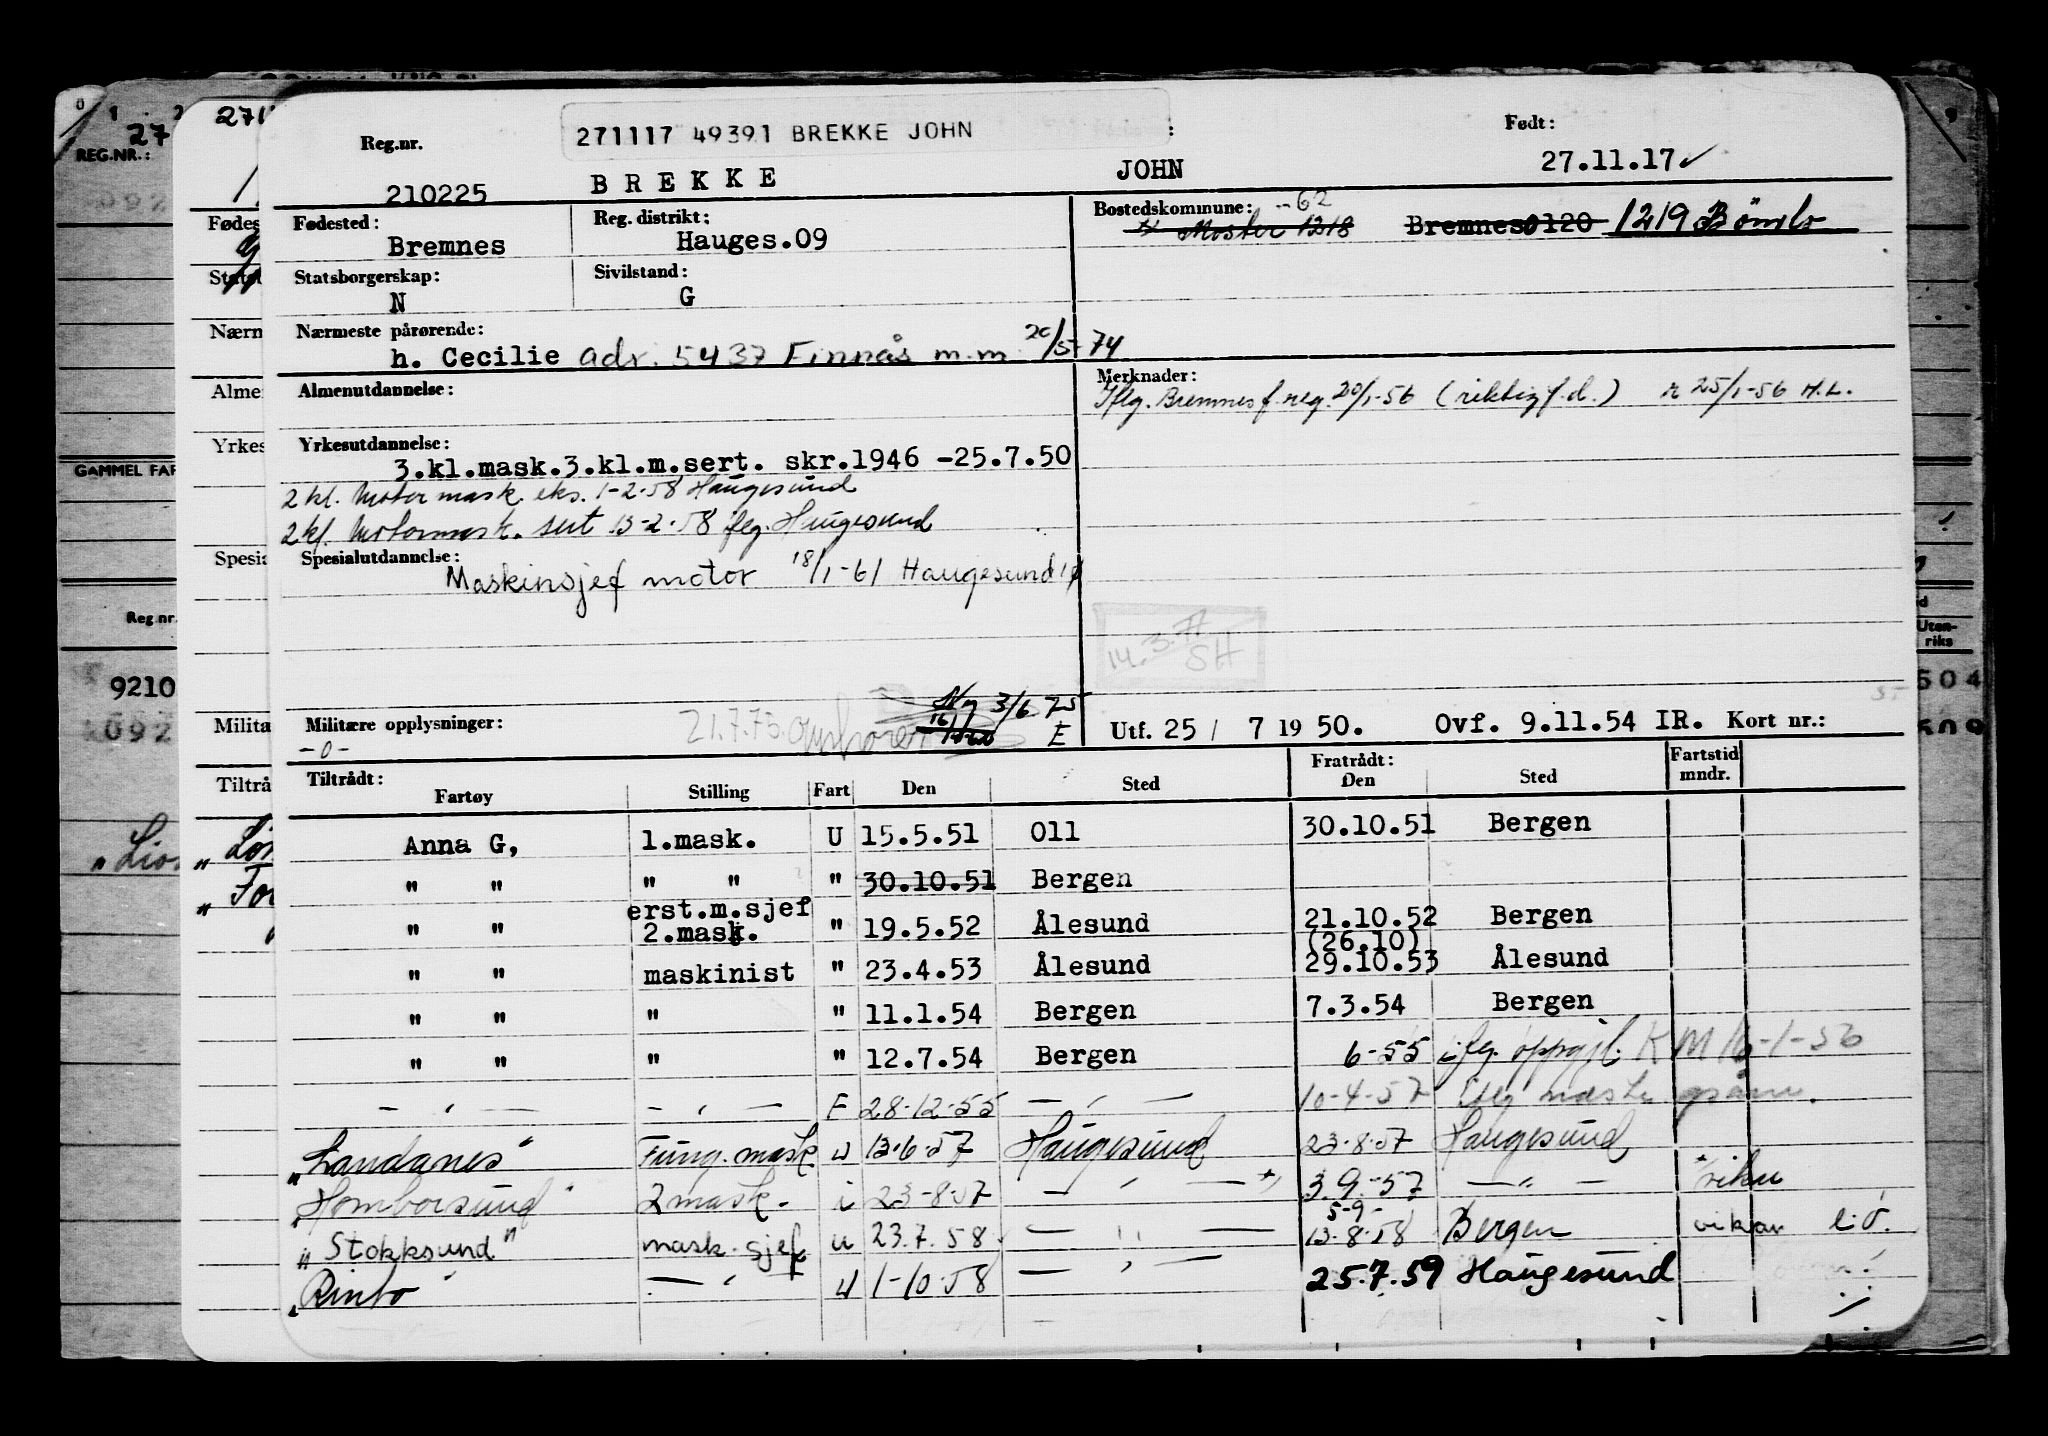 271117 49391 BREKKE JOHN
Reg.nr. Født:
210225 BREKKE JOHN 27.11.17
Fødested: Reg. distrikt: Bostedskommune: --62
Bremnes Hauges.09 Moster 1218 Bremnes0120 1219 Bömlo
Statsborgerskap: Sivilstand:
N G
Nærmeste pårørende:
h. Cecilie adr. 5437 Finnås m.m 20/5-74
Almenutdannelse: Merknader:
Iflg. Bremnes f.reg. 20/1-56 (riktig f.d.) r 25/1-56 H.L.
Yrkesutdannelse:
3.kl.mask.3.kl.m.sert. skr.1946 -25.7.50
2 kl. Motor mask. eks. 1-2-58 Haugesund
2 kl. Motormask. sert 13-2-58 flg. Haugesund
Spesialutdannelse:
Maskinsjef motor 18/1-61 Haugesund
14.3.77
SH
3/6 75
Militære opplysninger: 21.7.73 E Utf. 25/ 7 19 50. Ovf. 9.11.54 IR. Kort nr.:
-0-
Tiltrådt: Fratrådt: Fartstid
Fartøy Stilling Fart Den Sted Den Sted mndr.
Anna G, 1.mask. U 15.5.51 Oll 30.10.51 Bergen
" " " " " 30.10.51 Bergen
erst.m.sjef
" " 2.mask. " 19.5.52 Ålesund 21.10.52 Bergen
(26.10)
" " maskinist " 23.4.53 Ålesund 29.10.53 Ålesund
" " " " 11.1.54 Bergen 7.3.54 Bergen
" " " " 12.7.54 Bergen 6-55 iflg. oppgj. KM 16-1-56
— " — — " — F 28-12-55 — " — 10-4-57 iflg
"Landanes" Fung. mask. U 13-6-57 Haugesund 23-8-57 Haugesund
"Homborsund" 2 mask. i 23-8-57 — " — 3.9.-57 — " —
5-9-
"Stokksund" mask.sjef u 23.7.58 — " — 13-8-58 Bergen vikar
"Rinto" — " — U 1-10-58 — " — 25.7.59 Haugesund
REG.NR.:
GAMMEL FAR
Reg.nr.
9210
Uten-
riks
504